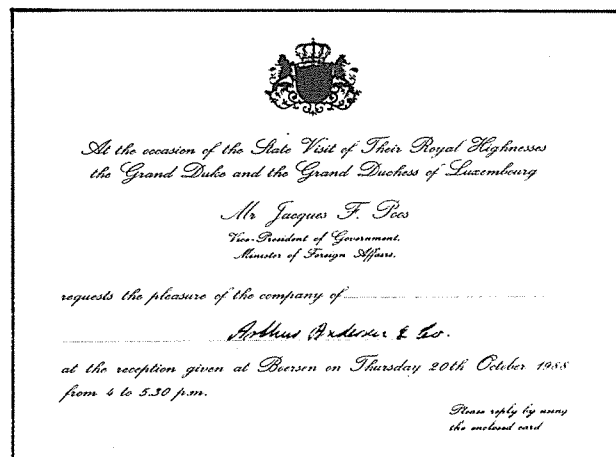 At the occasion of the State Visit of Their Royal Highnesses
the Grand Duke and the Grand Duchess of Luxembourg
Mr Jacques F. Poos
Vice-President of Government,
Minister of Foreign Affairs,
requests the pleasure of the company of
Arthur Andersen & Co.
at the reception given at Boersen on Thursday 20th October 1988
from 4 to 5.30 p.m.
Please reply by using
the enclosed card